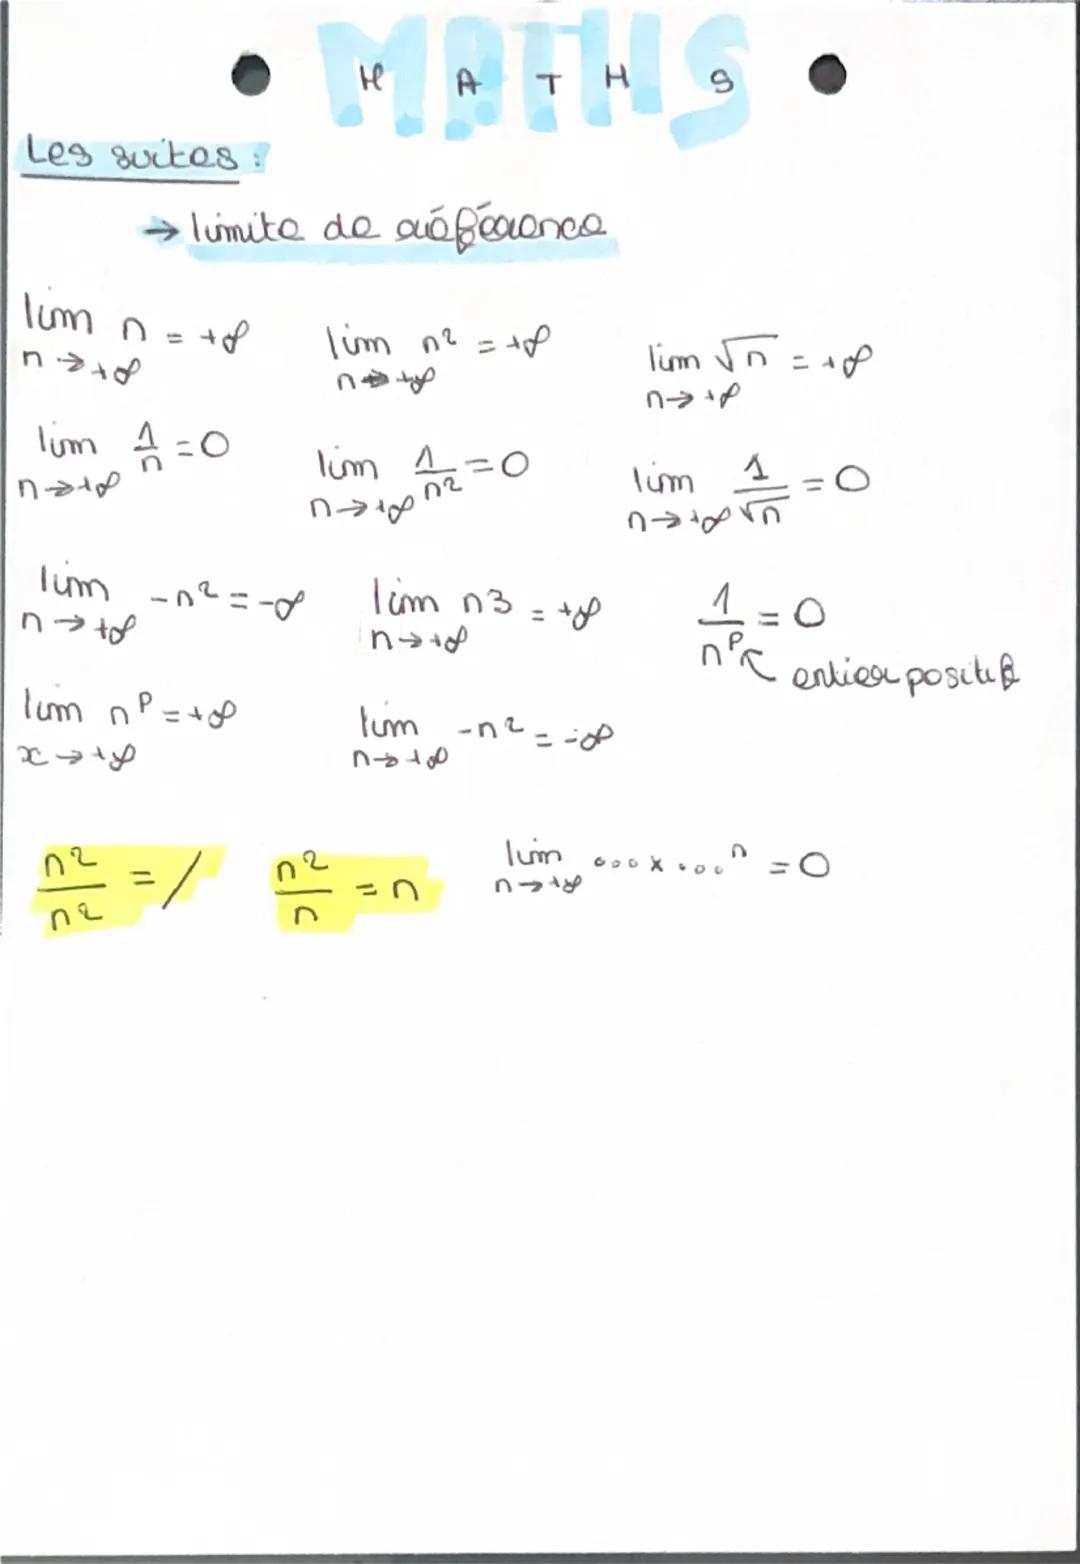 MATHS
M A T H S
Les suites :
→ limite de référence
lim n = +∞ lim n² = +∞ lim √n = +∞
n → +∞ n → +∞ n → +∞
lim 1/n = 0 lim 1/n² = 0 lim 1/√n = 0
n → +∞ n → +∞ n → +∞
lim -n² = -∞ lim n3 = +∞ 1/nᵖ = 0
n → +∞ n → +∞ ↖ entier positif
lim nᵖ = +∞ lim -n² = -∞
x → +∞ n → +∞
n²/n² = / n²/n = n lim ...x...ⁿ = 0
n → +∞